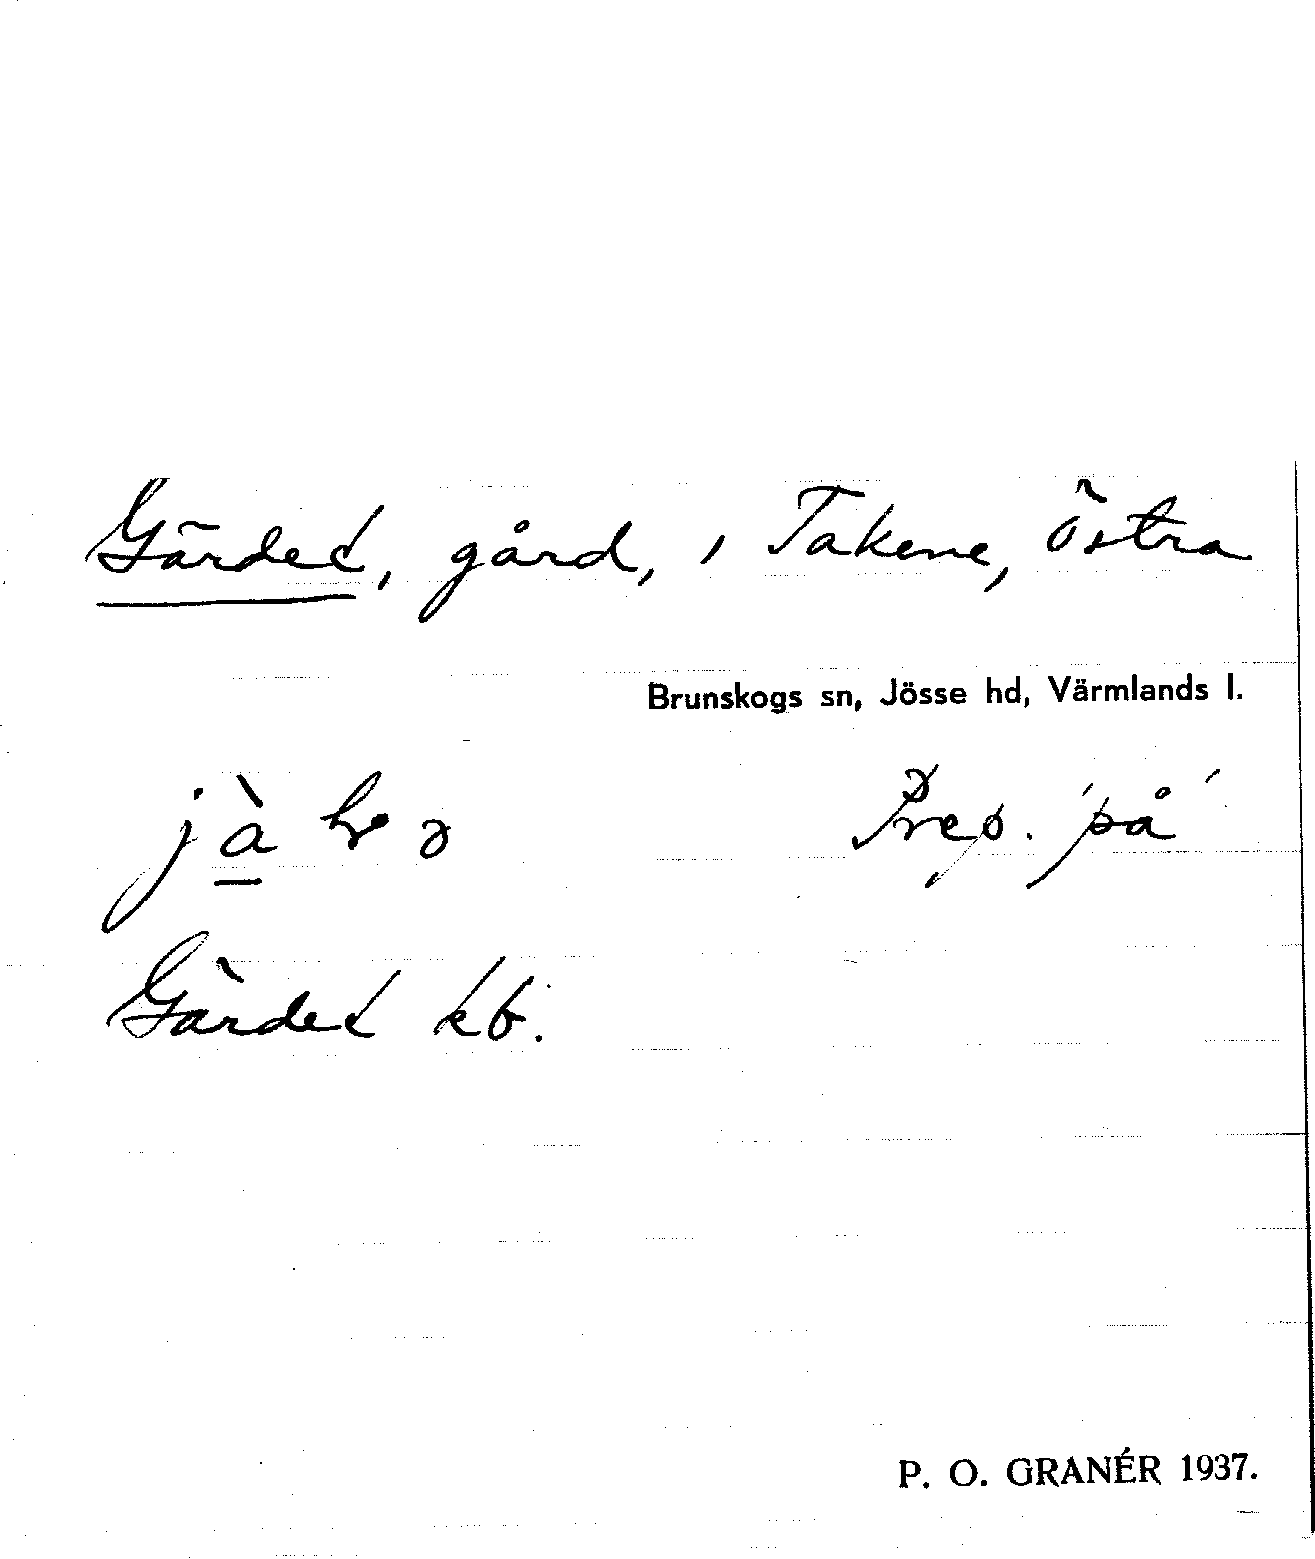 Gärdet, gård, i Takene, Östra
Brunskogs sn, Jösse hd, Värmlands l.
Prep. 'på'
Gärdet kb.
P. O. GRANÉR 1937.